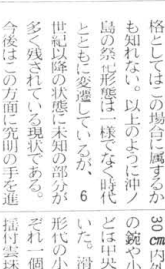 格としてはこの場合に属するか
も知れない。以上のように沖ノ
島の祭祀形態は一様でなく時代
とともに変遷しているが、6
世紀以降の状態に未知の部分が
多く残されている現状である。
今後はこの方面に究明の手を進
30cm内外
の鏡や小
どは中央
いた。滑
形代の小
ぞれ一個
揺付雲珠